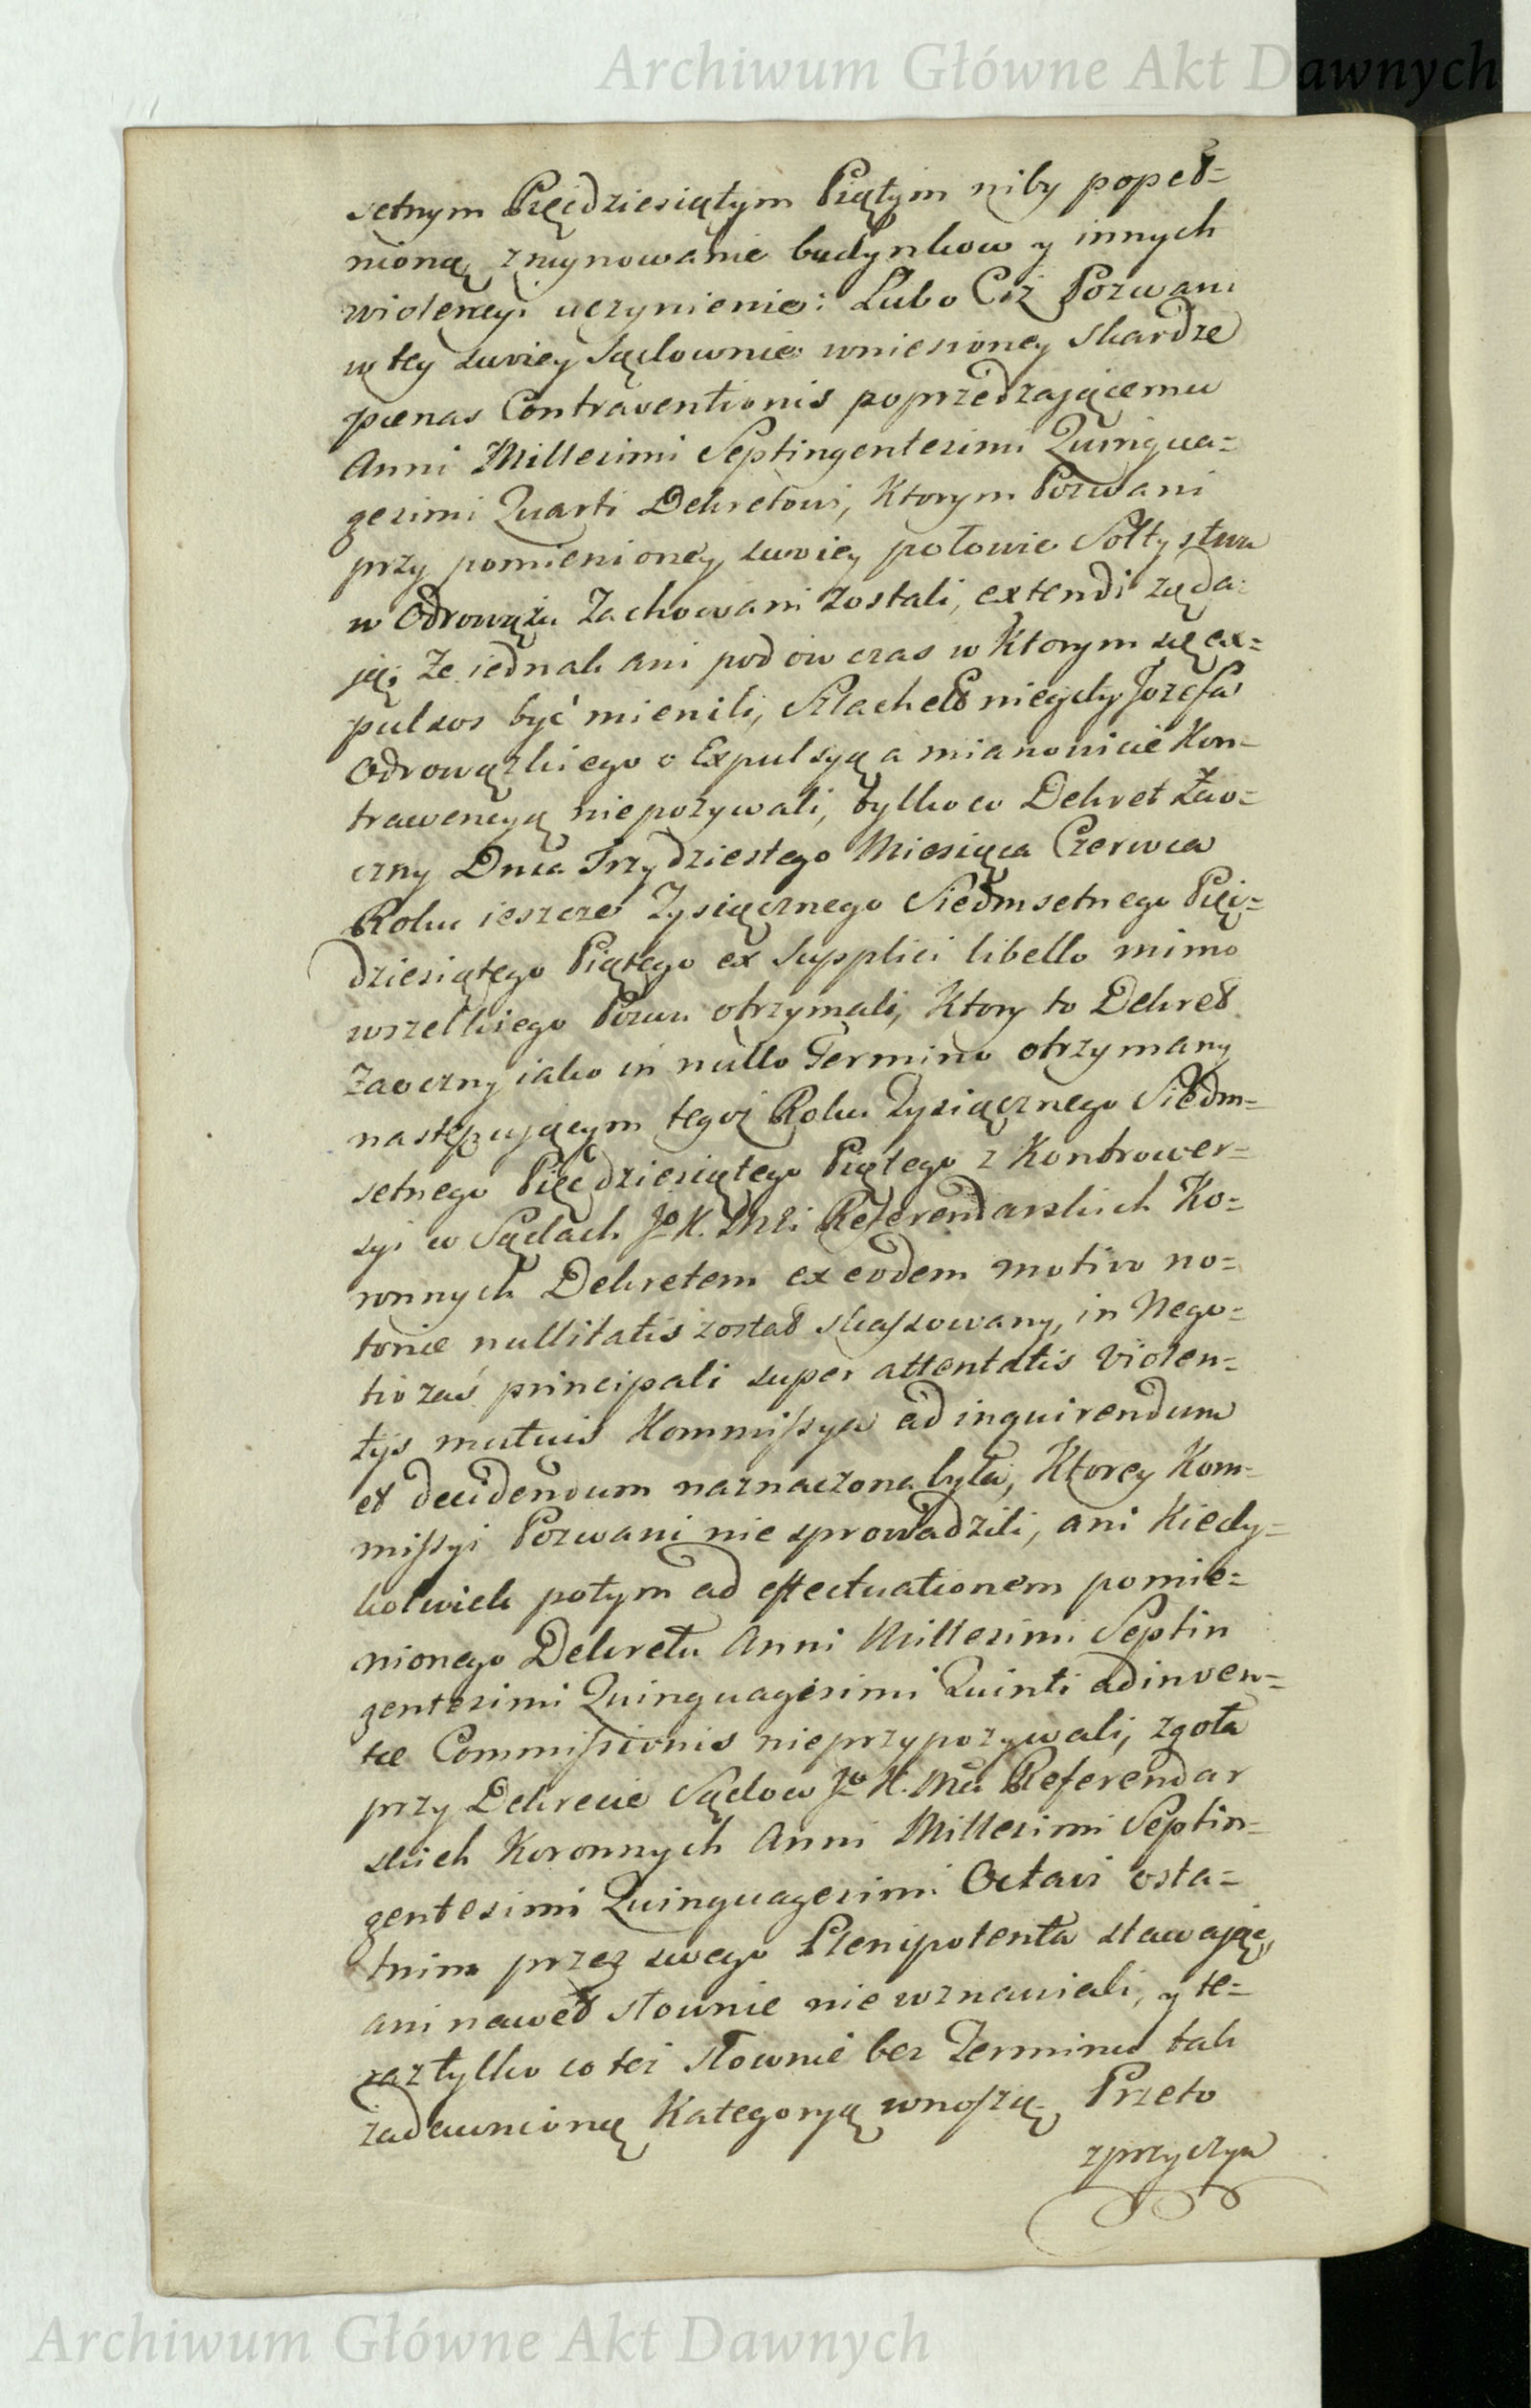 Archiwum Główne Akt Dawnych
setnym Pięćdziesiątym Piątym niby popeł=
nioną zruynowanie budynkow y innych
wiolencyi uczynienie: Lubo Ciż Pozwani
w tey swoiey sądownie wniesioney skardze
pœnas Contraventionis poprzedzaiącemu
Anni Millesimi Septingentesimi Quinqua=
gesimi Quarti Dekretowi, Ktorym Pozwani
przy pomienioney swoiey połowie Sołtystwa
w Odrowążu Zachowani zostali, extendi żąda=
ją; Ze iednak ani pod ow czas w Ktorym się ex=
pulsos być mienili, Szlachet niegdy Jozefa
Odrowązkiego o Expulsyą a mianowicie Kon=
trawencyą niepozywali, tylko co Dekret Zao=
czny Dnia Trzydziestego Miesiąca Czerwca
Roku ieszcze Tysiącznego Siedmsetnego Pięć=
dziesiątego Piątego ex supplici libello mimo
wszelkiego Pozwu otrzymali, Ktory to Dekret
Zaoczny iako in nullo Termino otrzymany
następuiącym tegoż Roku Tysiącznego Siedm=
setnego Pięćdziesiątego Piątego z Kontrower=
syi w Sądach Jo K. Mći Referendarskich Ko=
ronnych Dekretem ex eodem motivo no=
toriæ nullitatis został skassowany, in Nego=
tio zaś principali super attentatis violen=
tys mutuis Kommissya ad inquirendum
et decidendum naznaczona była, Ktorey Kom=
missyi Pozwani nie sprowadzili, ani Kiedy=
kolwiek potym ad effectuationem pomie=
nionego Dekretu Anni Millesimi Septin
gentesimi Quinquagesimi Quinti adinven=
tæ Commissionis nieprzypozywali, zgoła
przy Dekrecie Sądow Jo K. Mći Referendar
skich Koronnych Anni Millesimi Septin=
gentesimi Quinquagesimi Octavi osta=
tnim przez swego Plenipotenta stawając,
ani nawet słownie nie wznawiali, y te=
raz tylko co też słownie bez Terminu tak
zadawnioną Kategoryą wnoszą. Przeto
zprzyczyn
Archiwum Główne Akt Dawnych